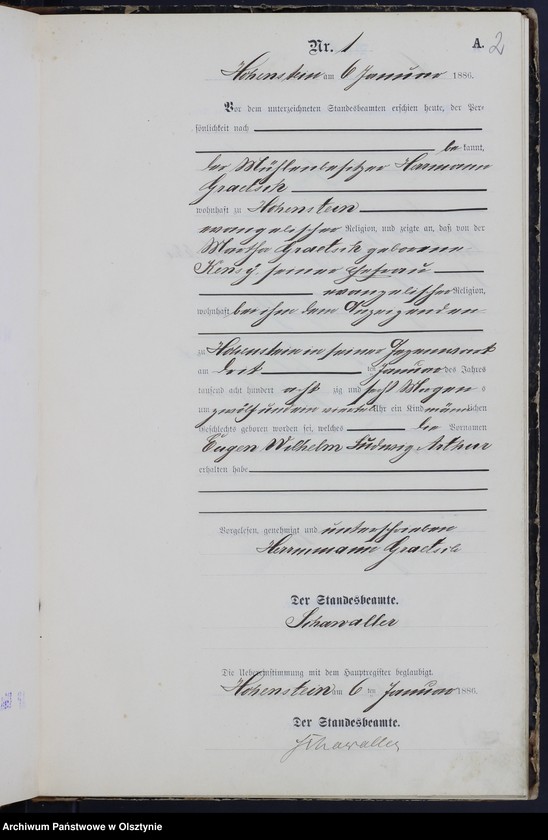 A. 2
Nr. 1
Hohenstein am 6 Januar 1886.
Vor dem unterzeichneten Standesbeamten erschien heute, der Per-
sönlichkeit nach
be kannt,
der Mühlenbesitzer Hermann
Graetsch
wohnhaft zu Hohenstein
evangelischer Religion, und zeigte an, daß von der
Martha Graetsch geborene
seiner Ehefrau
evangelischer Religion,
wohnhaft bei ihm dem Anzeigenden
zu Hohenstein in seiner Gegenwart
am ten Januar des Jahres
tausend acht hundert acht zig und sechs Morgens
um zwölf und ein viertel Uhr ein Kind männlichen
Geschlechts geboren worden sei, welches die Vornamen
Eugen Wilhelm Ludwig Arthur
erhalten habe
Vorgelesen, genehmigt und unterschrieben
Herrmann Graetsch
Der Standesbeamte.
Schawaller
Die Uebereinstimmung mit dem Hauptregister beglaubigt.
Hohenstein am 6 ten Januar 1886.
Der Standesbeamte.
Schawaller
Archiwum Państwowe w Olsztynie